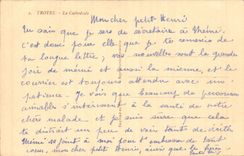 2. TROYES. - La Cathédrale
Mon cher petit Henri
Tu sais que je sers de secrétaire à
c'est donc pour elle que je te remercie de
ta longue lettre, vos nouvelles sont la grande
joie de mémé et aussi la mienne, et le
courrier est toujours attendu avec im-
patience. Je vois que beaucoup de personnes
aimables s'intéressent à la santé de notre
chère malade, et je suis sûre que cela
te distrait un peu de voir tante
Mémé se joint à moi pour t'embrasse de tout
mon cher petit Henri, ainsi que